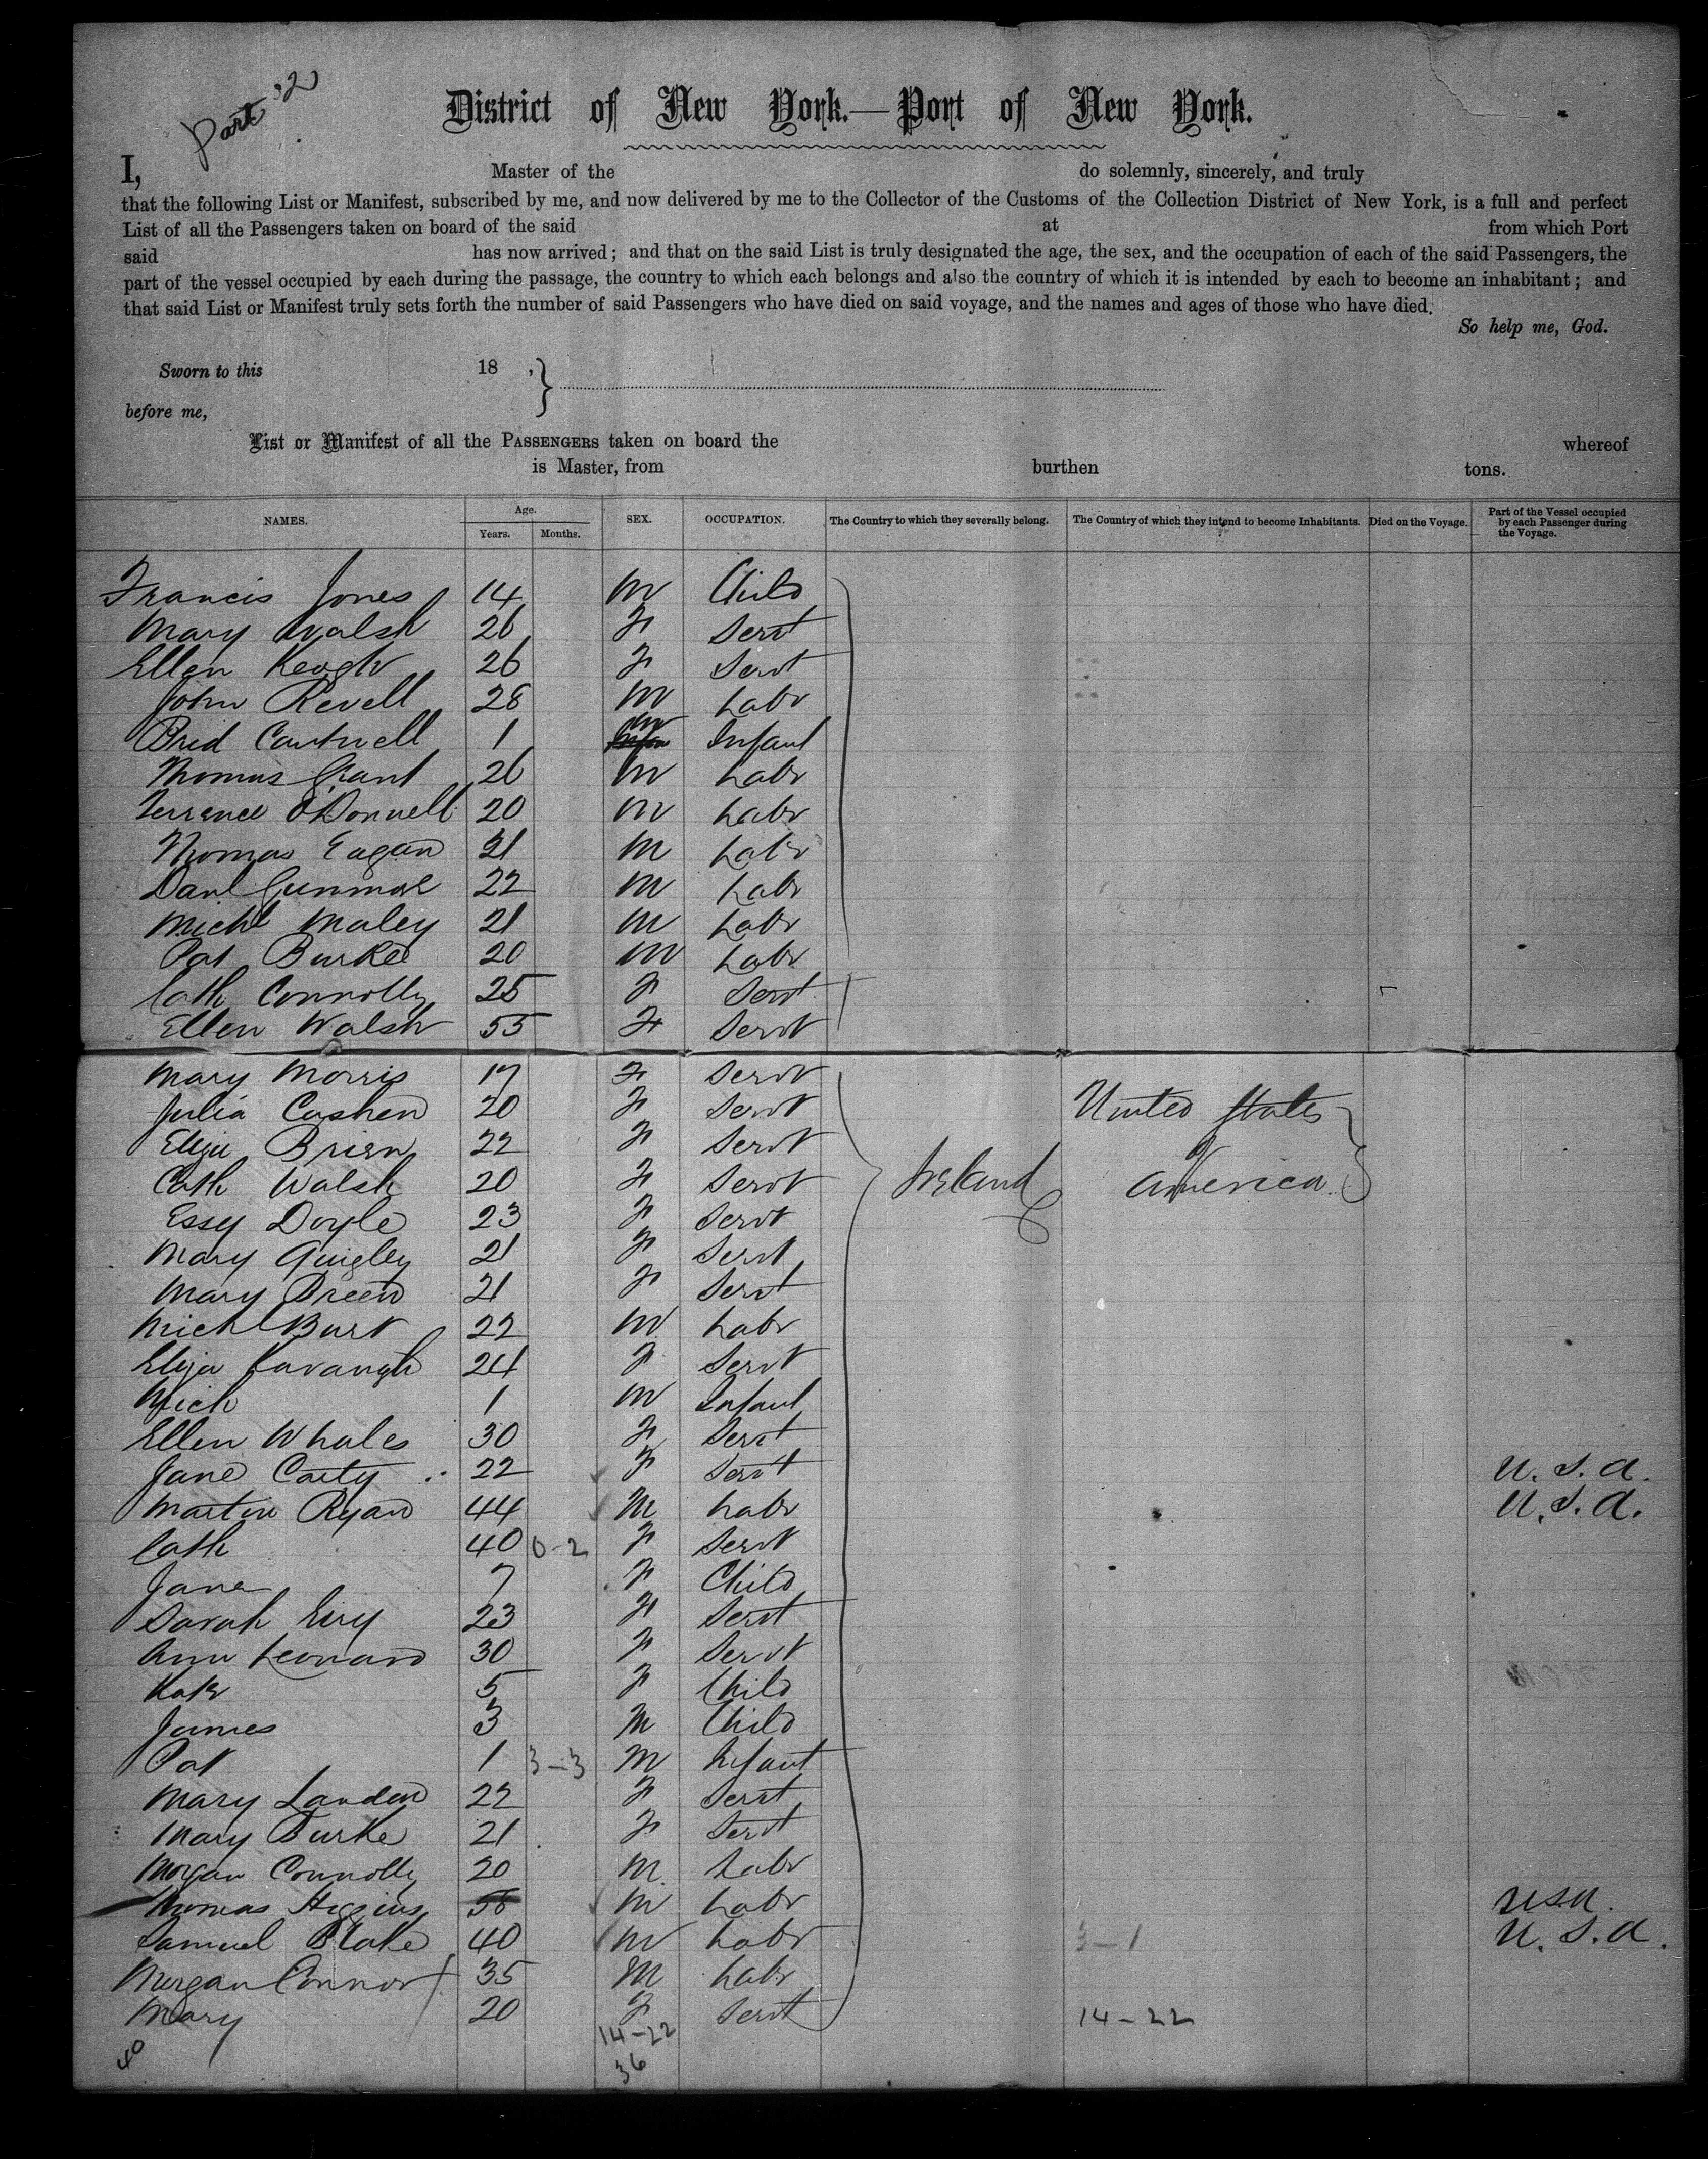 Part 32
District of New York.—Port of New York.
I, Master of the do solemnly, sincerely, and truly
that the following List or Manifest, subscribed by me, and now delivered by me to the Collector of the Customs of the Collection District of New York, is a full and perfect
List of all the Passengers taken on board of the said at from which Port
said has now arrived; and that on the said List is truly designated the age, the sex, and the occupation of each of the said Passengers, the
part of the vessel occupied by each during the passage, the country to which each belongs and also the country of which it is intended by each to become an inhabitant; and
that said List or Manifest truly sets forth the number of said Passengers who have died on said voyage, and the names and ages of those who have died.
So help me, God.
Sworn to this 18 ,
before me,
List or Manifest of all the PASSENGERS taken on board the whereof
is Master, from burthen tons.
NAMES. Age. Years. Months. SEX. OCCUPATION. The Country to which they severally belong. The Country of which they intend to become Inhabitants. Died on the Voyage. Part of the Vessel occupied by each Passenger during the Voyage.
Francis Jones 14 M Child
Mary Walsh 26 F Servt
Ellen Keogh 26 F Servt
John Revell 28 M Labr
Brid Cantwell 1 Infant
Thomas Grant 26 M Labr
Terrance O'Donnell 20 M Labr
Thomas Eagan 21 M Labr
Danl 22 M Labr
Michl Maley 21 M Labr
Pat Burke 20 M Labr
Cath Connolly 25 F Servt
Ellen Walsh 55 F Servt
Mary Morris 17 F Servt
Julia Cashen 20 F Servt United States
Eliza Brien 22 F Servt of
Cath Walsh 20 F Servt Ireland America
Essy Doyle 23 F Servt
Mary Quigley 21 F Servt
Mary Breen 21 F Servt
Michl Burt 22 M Labr
Eliza Kavanagh 24 F Servt
Mich 1 M Infant
Ellen Whales 30 F Servt
Jane Carty 22 F Servt U.S.A.
Martin Ryan 44 M Labr U.S.A.
Cath 40 0-2 F Servt
Jane 7 F Child
Sarah 23 F Servt
Ann Leonard 30 F Servt
Kate 5 F Child
James 3 M Child
Pat 1 3-3 M Infant
Mary Landen 22 F Servt
Mary Burke 21 F Servt
Morgan Connolly 20 M Labr
Thomas Higgins M Labr USA.
Samuel Blake 40 M Labr 3-1 U.S.A.
Morgan Connor 35 M Labr
Mary 20 F Servt 14-22
14-22
40 36